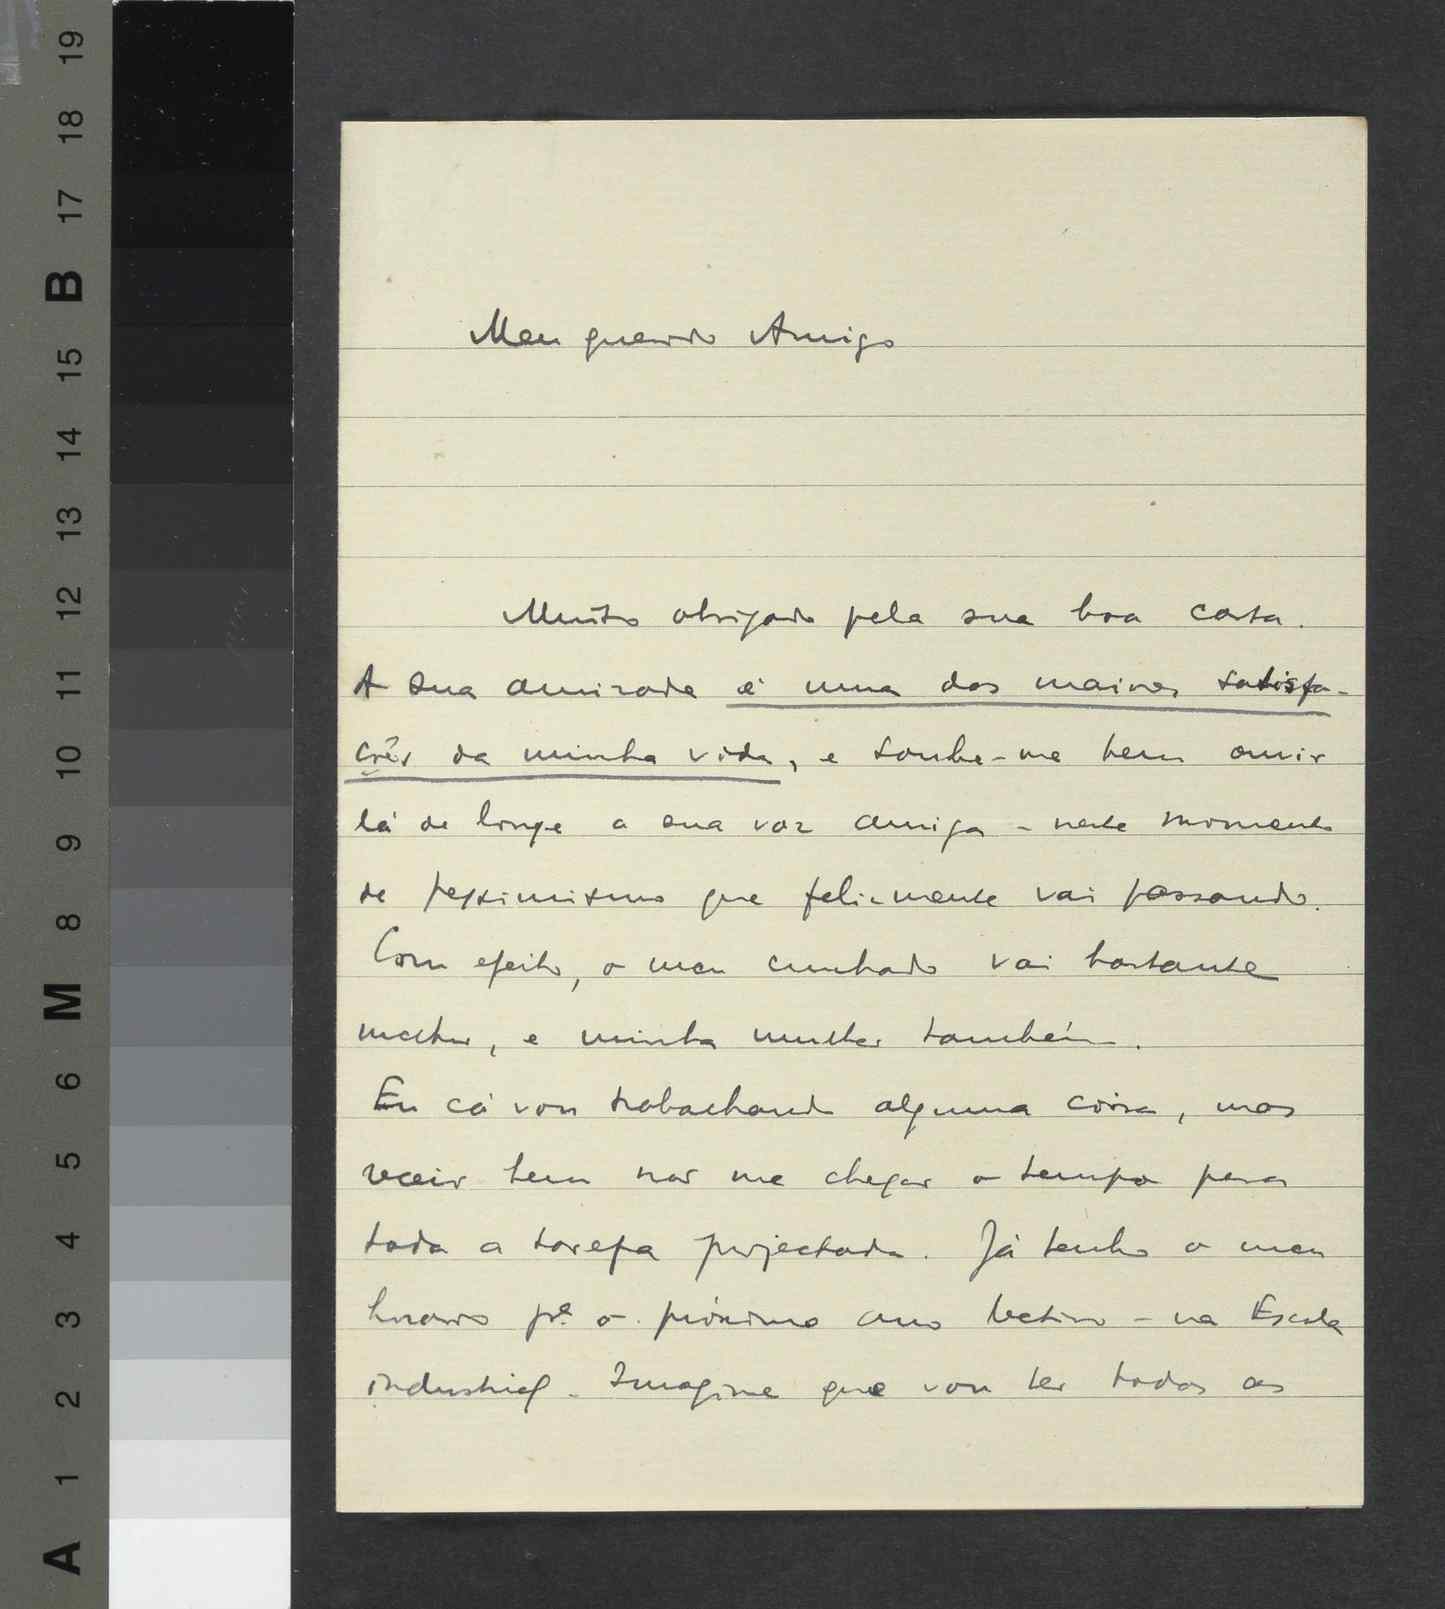 19
18
17
B
15
14
13
12
11
10
9
8
M
6
5
4
3
2
1
A
Meu querido Amigo
Muito obrigado pela sua boa carta.
A sua amizade é uma das maiores satisfa-
ções da minha vida, e soube-me bem ouvir
lá de longe a sua voz amiga - neste momento
de pessimismo que felizmente vai passando.
Com efeito, o meu cunhado vai bastante
melhor, e minha mulher também.
Eu cá vou trabalhando alguma coisa, mas
receio bem não me chegar o tempo para
toda a tarefa projectada. Já tenho o meu
horario pª o próximo ano lectivo - na Escola
industrial. Imagine que vou ter todas as